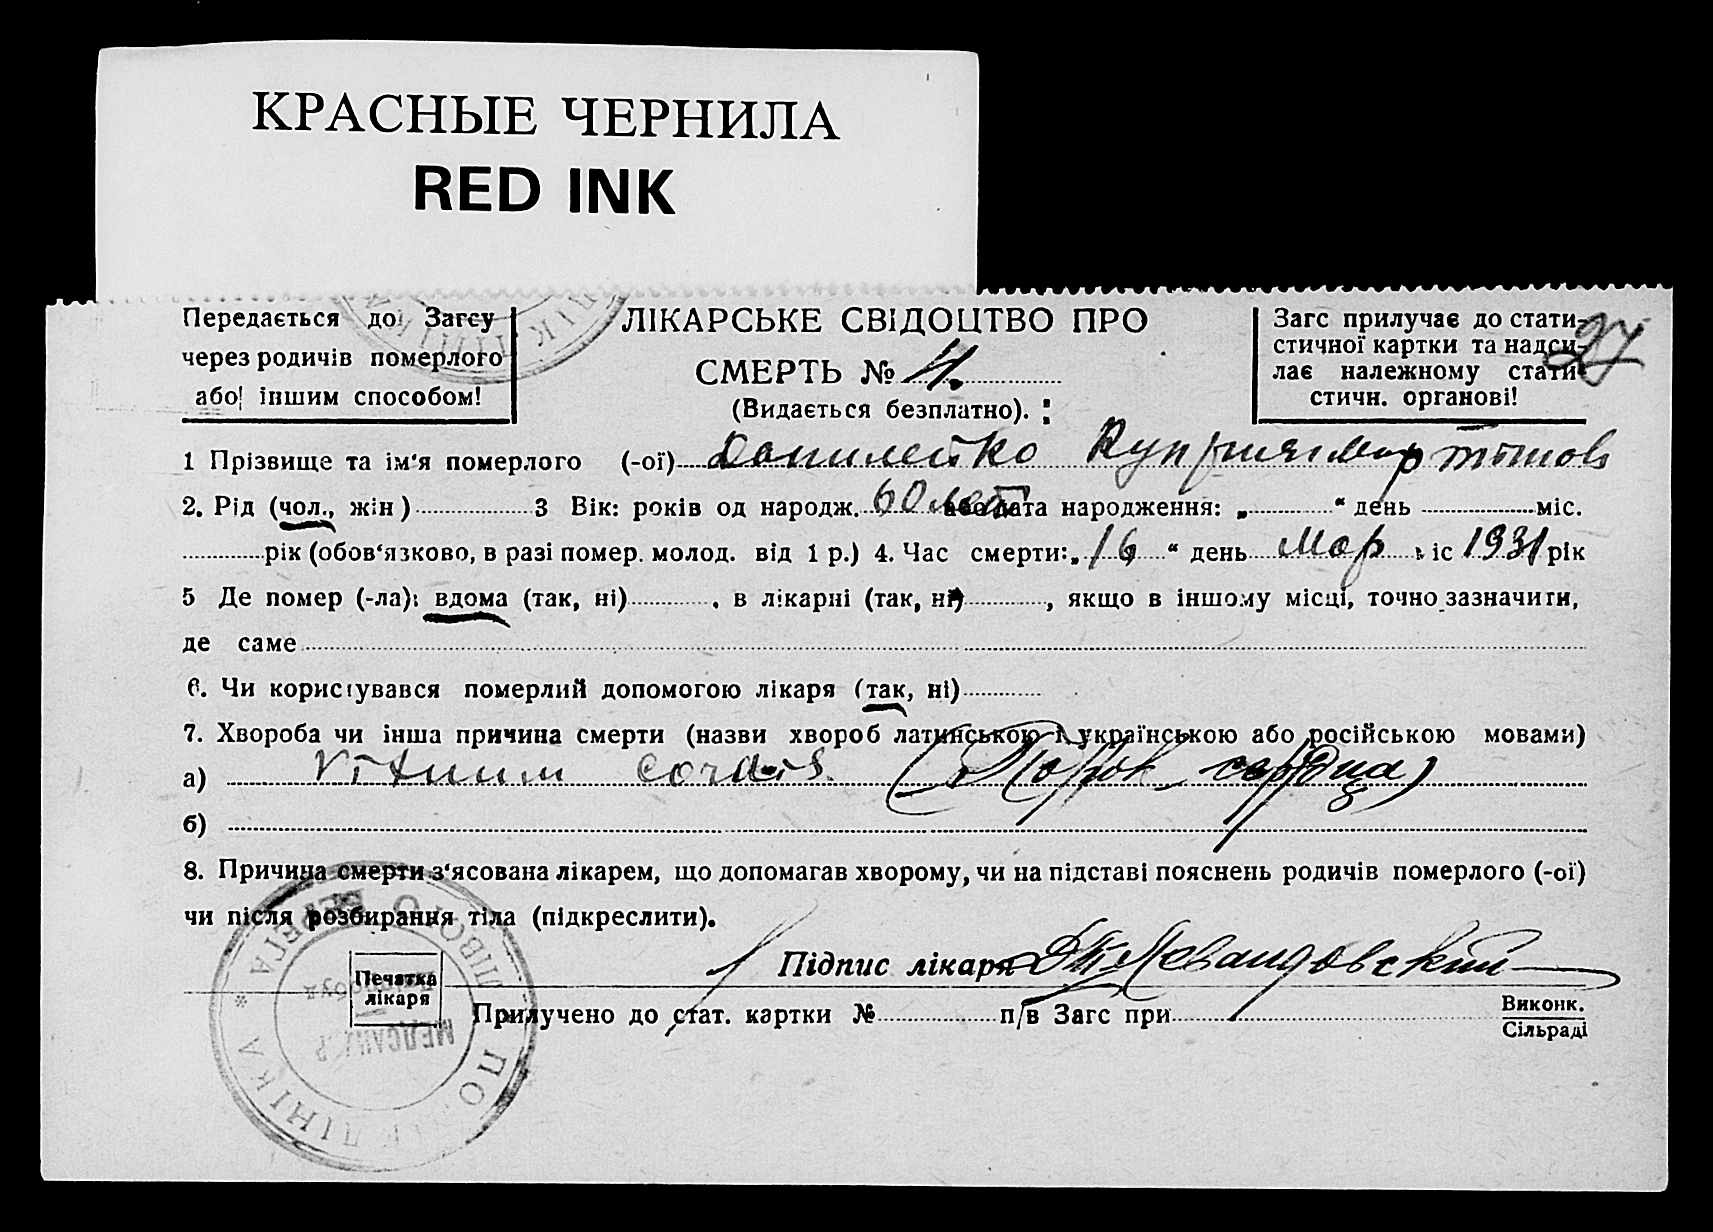 КРАСНЫЕ ЧЕРНИЛА
RED INK
Передається до Загсу
через родичів померлого
або іншим способом!
ЛІКАРСЬКЕ СВІДОЦТВО ПРО
СМЕРТЬ № 4.
(Видається безплатно).
Загс прилучає до стати-
стичної картки та надси-
лає належному стати-
стичн. органові!
27
1 Прізвище та ім'я померлого (-ої) Данилейко Куприян
2. Рід (чол., жін) 3 Вік: років од народж. 60 лет або дата народження: „ “ день міс.
рік (обов'язково, в разі помер. молод. від 1 р.) 4. Час смерти: „ 16 “ день Мар міс 1931 рік
5 Де помер (-ла): вдома (так, ні) , в лікарні (так, ні) , якщо в іншому місці, точно зазначити,
де саме
6. Чи користувався померлий допомогою лікаря (так, ні)
7. Хвороба чи інша причина смерти (назви хвороб латинською і українською або російською мовами)
а) Vitium cordis (Порок сердца)
б)
8. Причина смерти з'ясована лікарем, що допомагав хворому, чи на підставі пояснень родичів померлого (-ої)
чи після розбирання тіла (підкреслити).
Підпис лікаря Левандовский
Печатка
лікаря
Прилучено до стат. картки № п/в Загс при
Виконк.
Сільраді